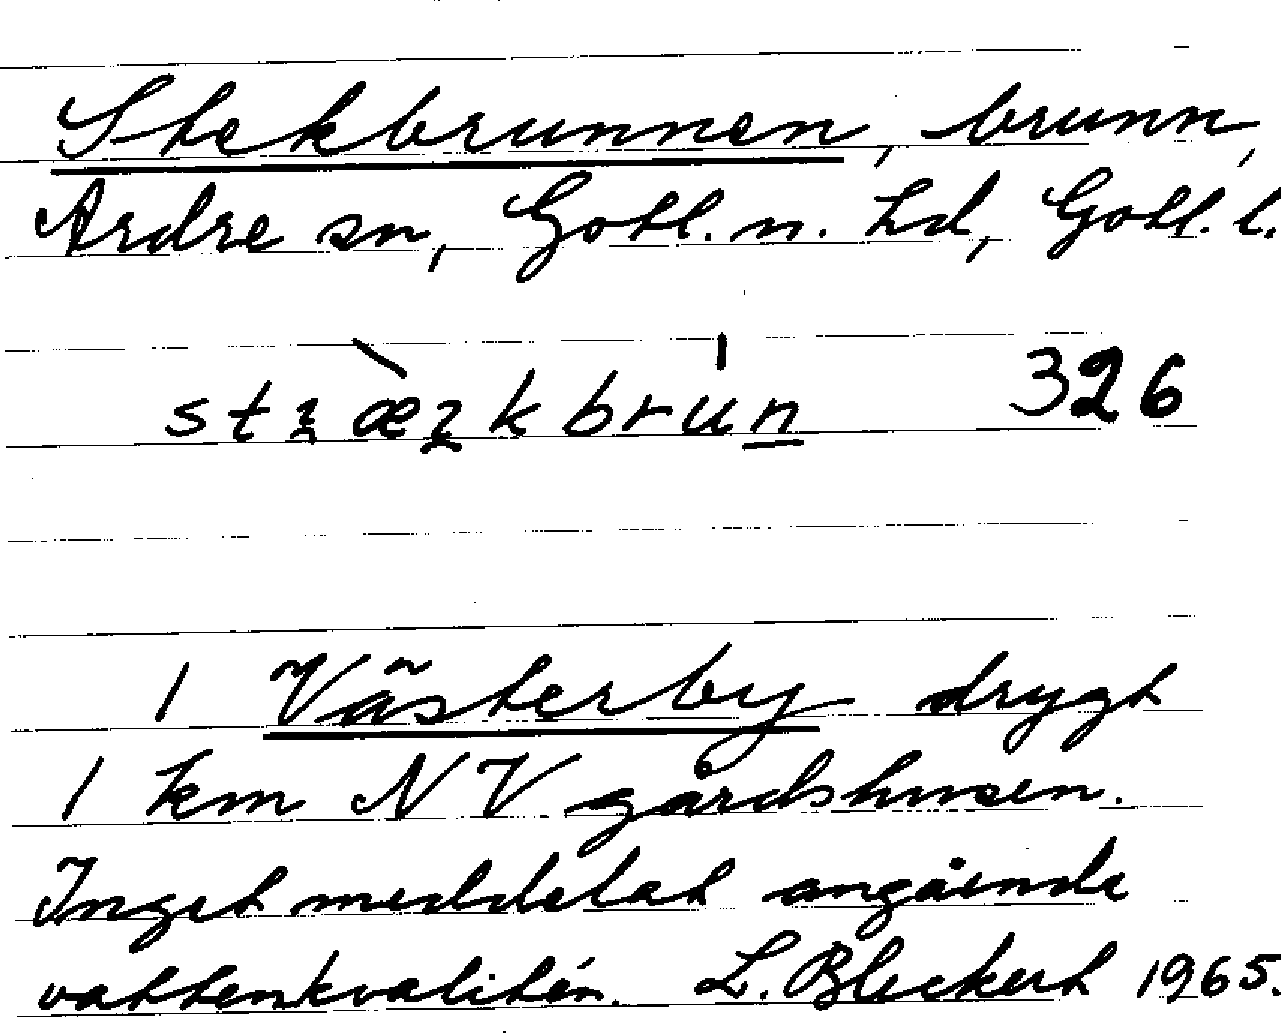 Stekbrunnen, brunn,
Ardre sn, Gotl. n. hd, Gotl. l.
326
I Västerby drygt
1 km NV gårdshusen.
Inget meddelat angående
vattenkvalitén. L. Bleckert 1965.